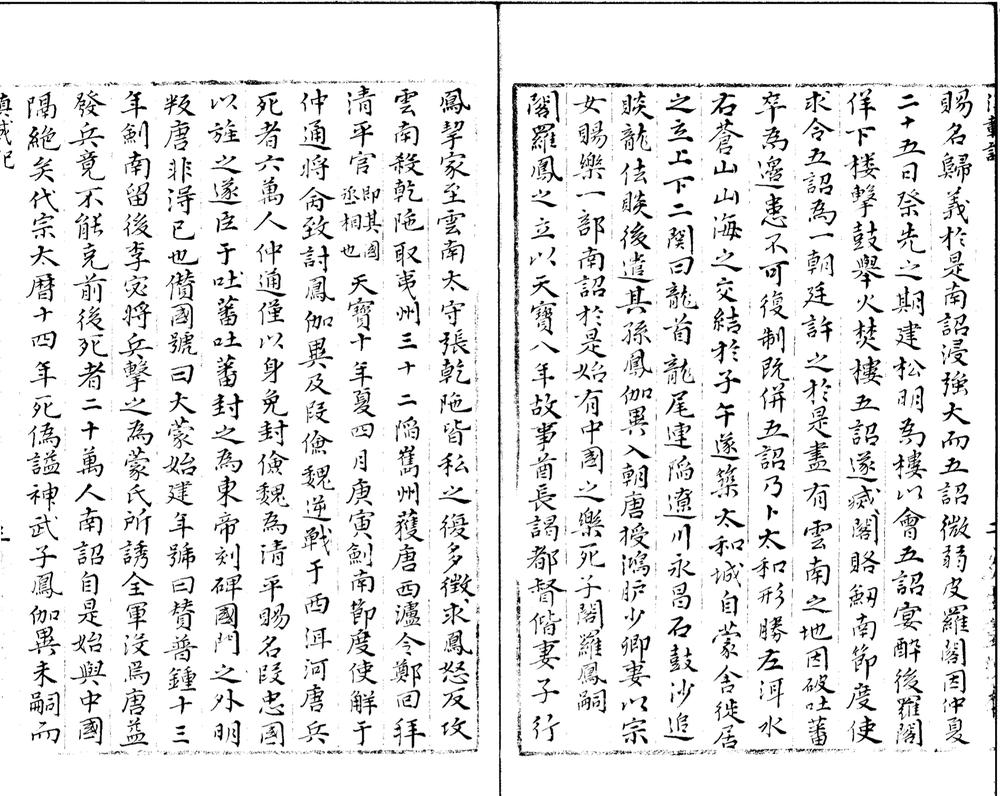 賜名歸義於是南詔浸強大而五詔微弱皮羅閣因仲夏
二十五日祭先之期建松明為樓以會五詔宴醉後羅閣
佯下樓擊鼓舉火焚樓五詔遂滅閣賂劒南節度使
求合五詔為一朝廷許之於是盡有雲南之地因破吐蕃
卒為邉患不可復制既併五詔乃卜太和形勝左洱水
右蒼山山海之交結於子午遂築太和城自蒙舍徙居
之立上下二関曰龍首龍尾連陷遼川永昌石鼓沙追
賧龍佉賧後遣其孫鳳伽異入朝唐授鴻胪少卿妻以宗
女賜樂一部南詔於是始有中國之樂死子閣羅鳳嗣
閣羅鳳之立以天寶八年故事酋長謁都督偕妻子行
鳳挈家至雲南太守張乾陁皆私之復多徴求鳳怒反攻
雲南殺乾陁取夷州三十二陷嶲州獲唐西瀘令鄭回拜
清平官即其國丞相也天寶十年夏四月庚寅劍南節度使鮮于
仲通將兵致討鳳伽異及段儉魏逆戰于西洱河唐兵
死者六萬人仲通僅以身免封儉魏為清平賜名段忠國
以旌之遂臣于吐蕃吐蕃封之為東帝刻碑國門之外明
叛唐非淂已也僣國號曰大蒙始建年號曰賛普鍾十三
年劍南留後李宓將兵擊之為蒙氏所誘全軍沒焉唐益
發兵竟不能克前後死者二十萬人南詔自是始與中國
隔絶矣代宗太曆十四年死偽謚神武子鳳伽異未嗣而
滇載記